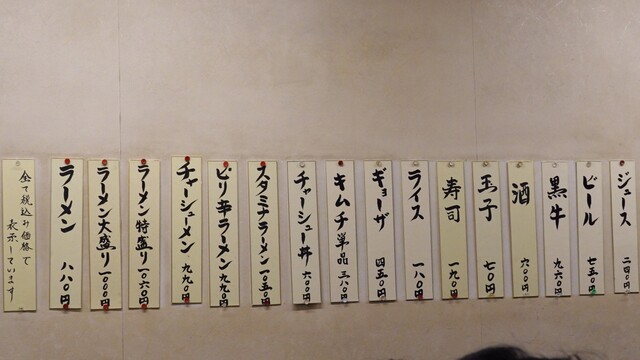 ジュース 二四〇円
ビール 七五〇円
黒牛 九六〇円
酒 六〇〇円
玉子 七〇円
寿司 一九〇円
ライス 一八〇円
ギョーザ 四五〇円
キムチ単品 三八〇円
チャーシュー丼 六〇〇円
スタミナラーメン 一〇五〇円
ピリ辛ラーメン 九九〇円
チャーシューメン 九九〇円
ラーメン特盛り 一〇六〇円
ラーメン大盛り 一〇〇〇円
ラーメン 八八〇円
全て税込み価格で
表示しています